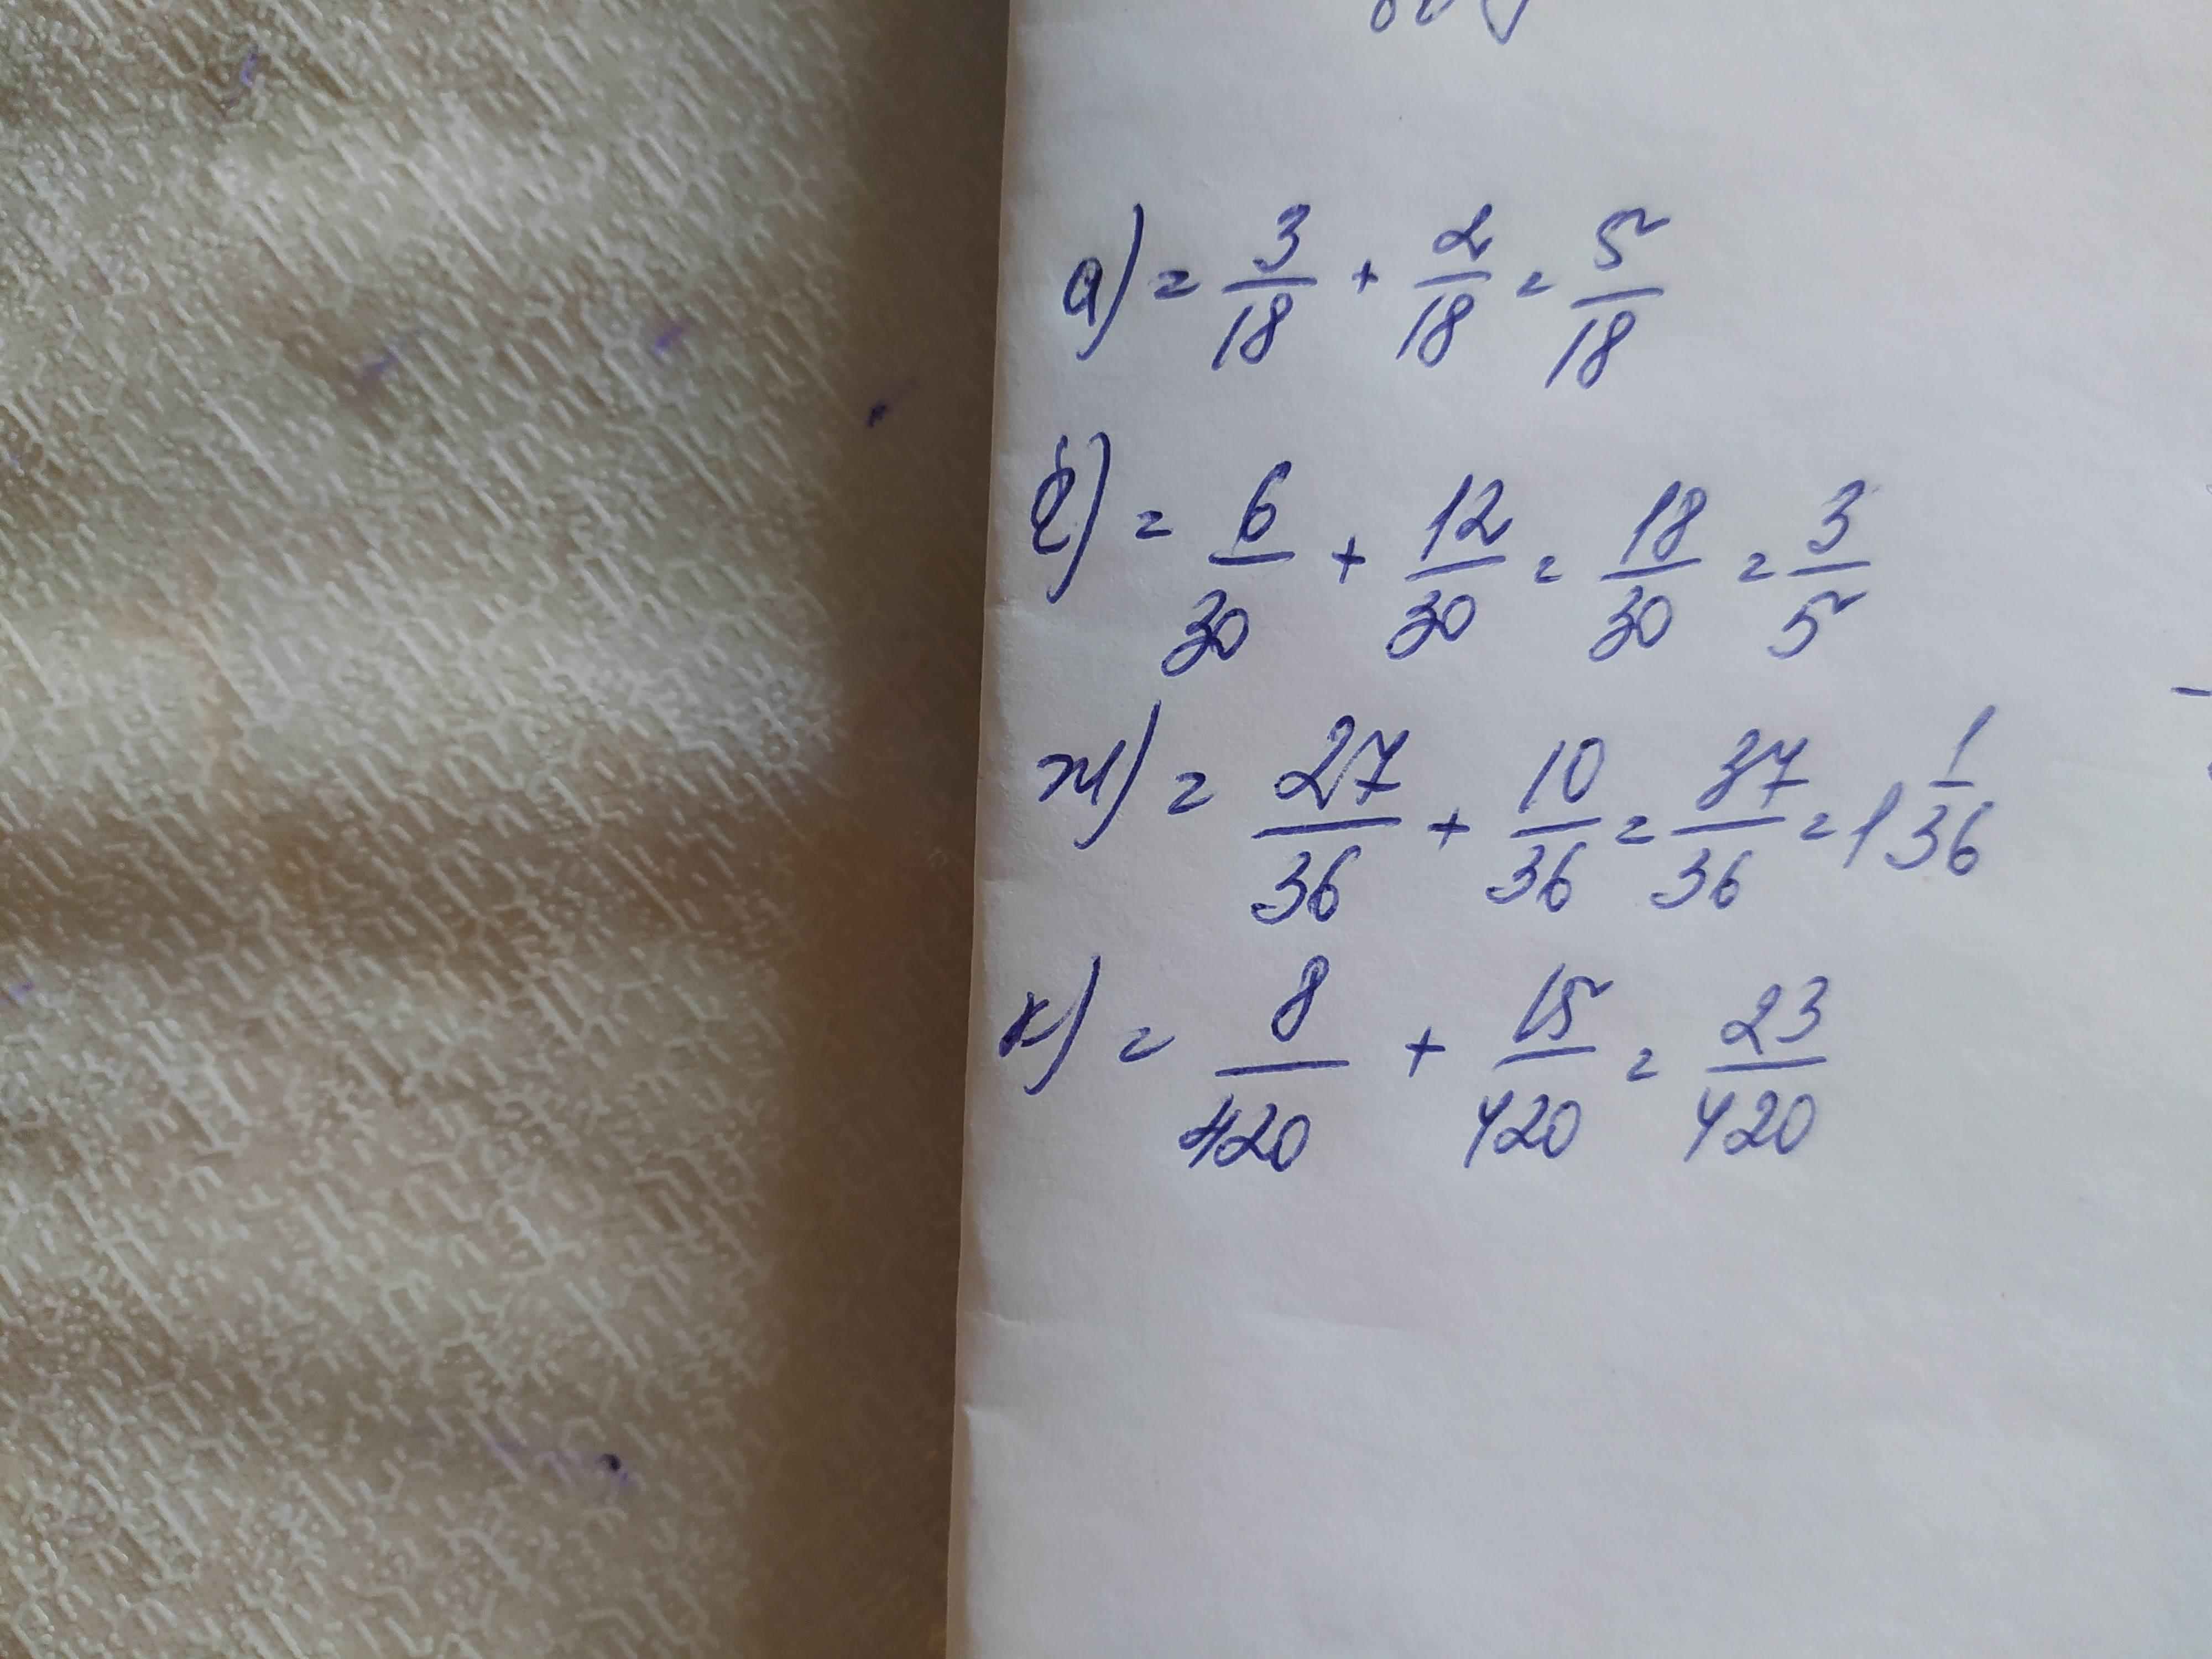 а) = 3/18 + 2/18 = 5/18
= 6/30 + 12/30 = 18/30 = 3/5
ж) = 27/36 + 10/36 = 37/36 = 1 1/36
к) = 8/420 + 15/420 = 23/420